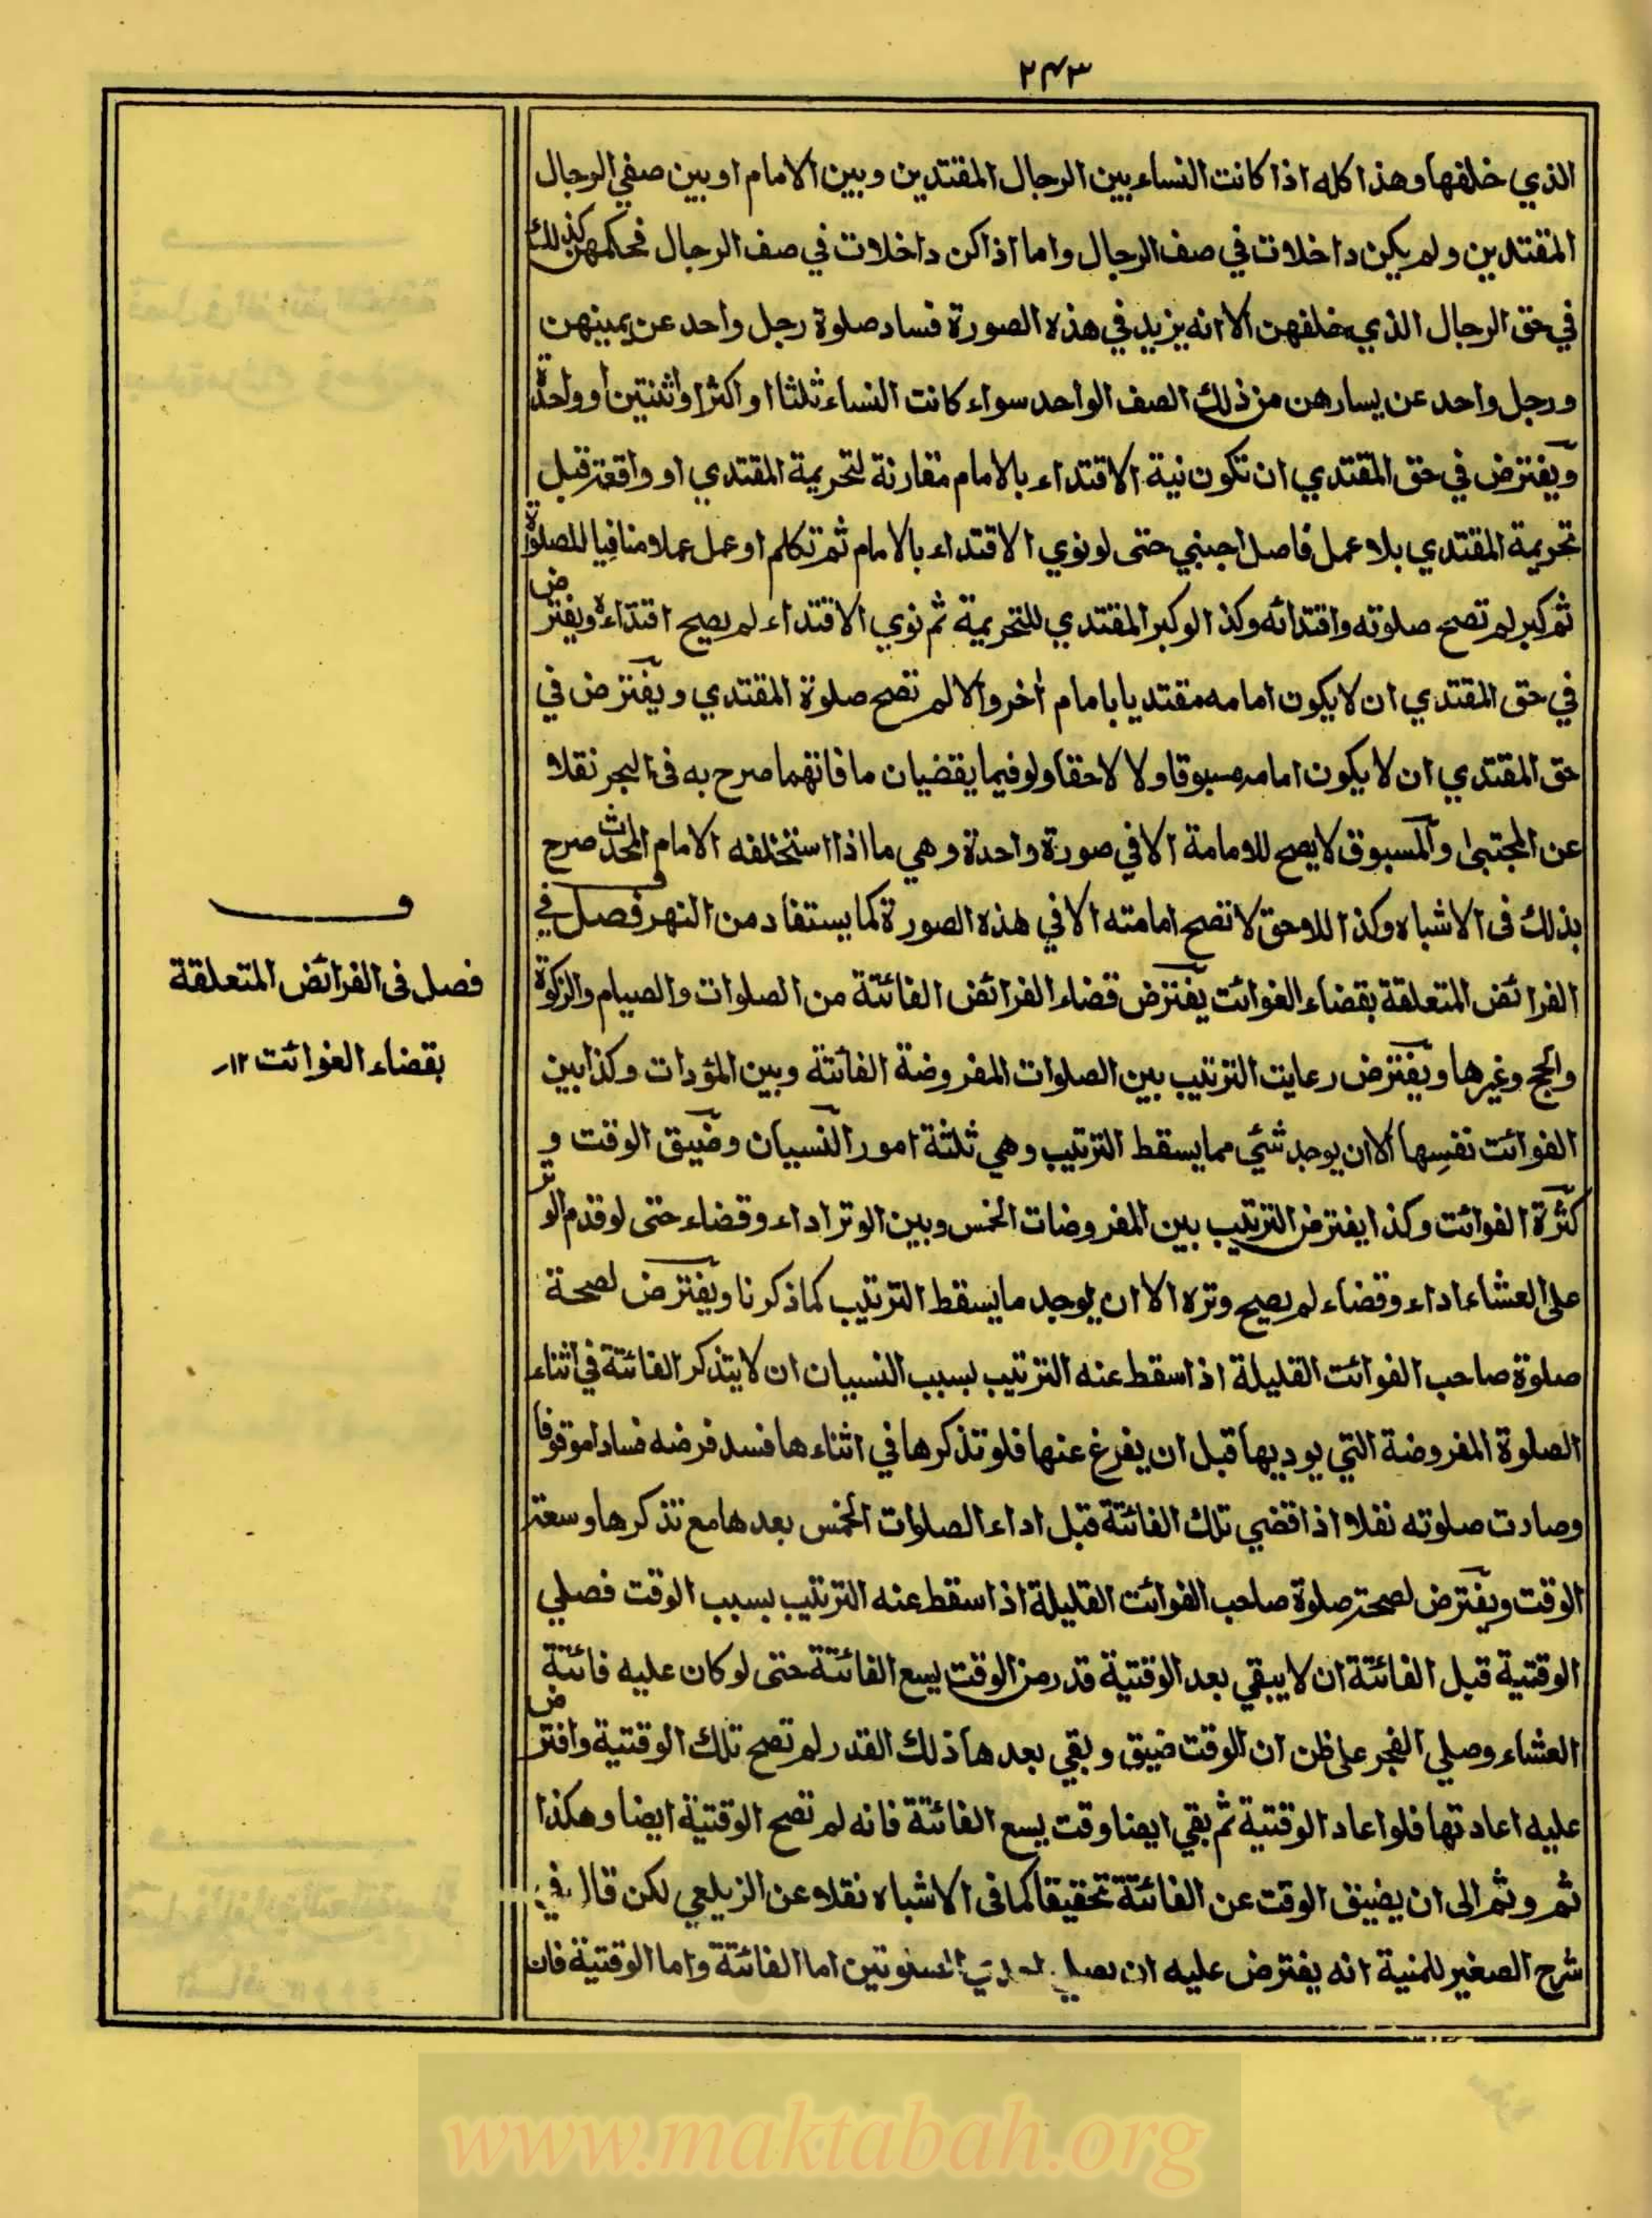 ٢٤٣
الذي خلفها وهذا كله اذا كانت النساء بين الرجال المقتدين وبين الامام او بين صفي الرجال
المقتدين ولم يكن داخلات في صف الرجال واما اذا كن داخلات في صف الرجال فحكمهن كذلك
في حق الرجال الذي خلفهن الا انه يزيد في هذه الصورة فساد صلوة رجل واحد عن يمينهن
ورجل واحد عن يسارهن من ذلك الصف الواحد سواء كانت النساء ثلثا او اكثر او اثنتين او واحدة
ويفترض في حق المقتدي ان تكون نية الاقتداء بالامام مقارنة لتحريمة المقتدي او واقعة قبل
تحريمة المقتدي بلا عمل فاصل اجنبي حتى لو نوي الاقتداء بالامام ثم تكلم او عمل عملا منافيا للصلوة
ثم كبر لم تصح صلوته واقتدائه وكذا لو كبر المقتدي للتحريمة ثم نوي الاقتداء لم يصح اقتداءه ويفترض
في حق المقتدي ان لا يكون امامه مقتديا بامام أخر والا لم تصح صلوة المقتدي ويفترض في
حق المقتدي ان لا يكون امامه مسبوقا ولا لاحقا ولو فيما يقضيان ما فاتهما صرح به فى البحر نقلا
عن المجتبى والمسبوق لا يصح للامامة الا في صورة واحدة وهي ما اذا استخلفه الامام المحدث صرح
بذلك فى الاشباه وكذا اللاحق لا تصح امامته الا في هذه الصورة كما يستفاد من النهر فصل في
الفرائض المتعلقة بقضاء الفوائت يفترض قضاء الفرائض الفائتة من الصلوات والصيام والزكوة
والحج وغيرها ويفترض رعايت الترتيب بين الصلوات المفروضة الفائتة وبين المؤدات وكذا بين
الفوائت نفسها الا ان يوجد شئي مما يسقط الترتيب وهي ثلثة امور النسيان وضيق الوقت و
كثرة الفوائت وكذا يفترض الترتيب بين المفروضات الخمس وبين الوتر اداء وقضاء حتى لو قدم الوتر
على العشاء اداء وقضاء لم يصح وتره الا ان يوجد ما يسقط الترتيب كما ذكرنا ويفترض لصحة
صلوة صاحب الفوائت القليلة اذا سقط عنه الترتيب بسبب النسيان ان لا يتذكر الفائتة في اثناء
الصلوة المفروضة التي يوديها قبل ان يفرغ عنها فلو تذكرها في اثناءها فسد فرضه فسادا موقوفا
وصادت صلوته نفلا اذا قضي تلك الفائتة قبل اداء الصلوات الخمس بعدها مع تذكرها وسعة
الوقت ويفترض لصحة صلوة صاحب الفوائت القليلة اذا سقط عنه الترتيب بسبب الوقت فصلي
الوقتية قبل الفائتة ان لا يبقي بعد الوقتية قدر من الوقت يسع الفائتة حتى لو كان عليه فائتة
العشاء وصلي الفجر على ظن ان الوقت ضيق وبقي بعدها ذلك القدر لم تصح تلك الوقتية وافترض
عليه اعادتها فلو اعاد الوقتية ثم بقي ايضا وقت يسع الفائتة فانه لم تصح الوقتية ايضا وهكذا
ثم وثم الى ان يضيق الوقت عن الفائتة تحقيقا كما فى الاشباه نقلا عن الزيلعي لكن قال في
شرح الصغير للمنية انه يفترض عليه ان يصلي احدي الصلوتين اما الفائتة واما الوقتية فان
ف
فصل فى الفرائض المتعلقة
بقضاء الفوائت ١٢
www.maktabah.org